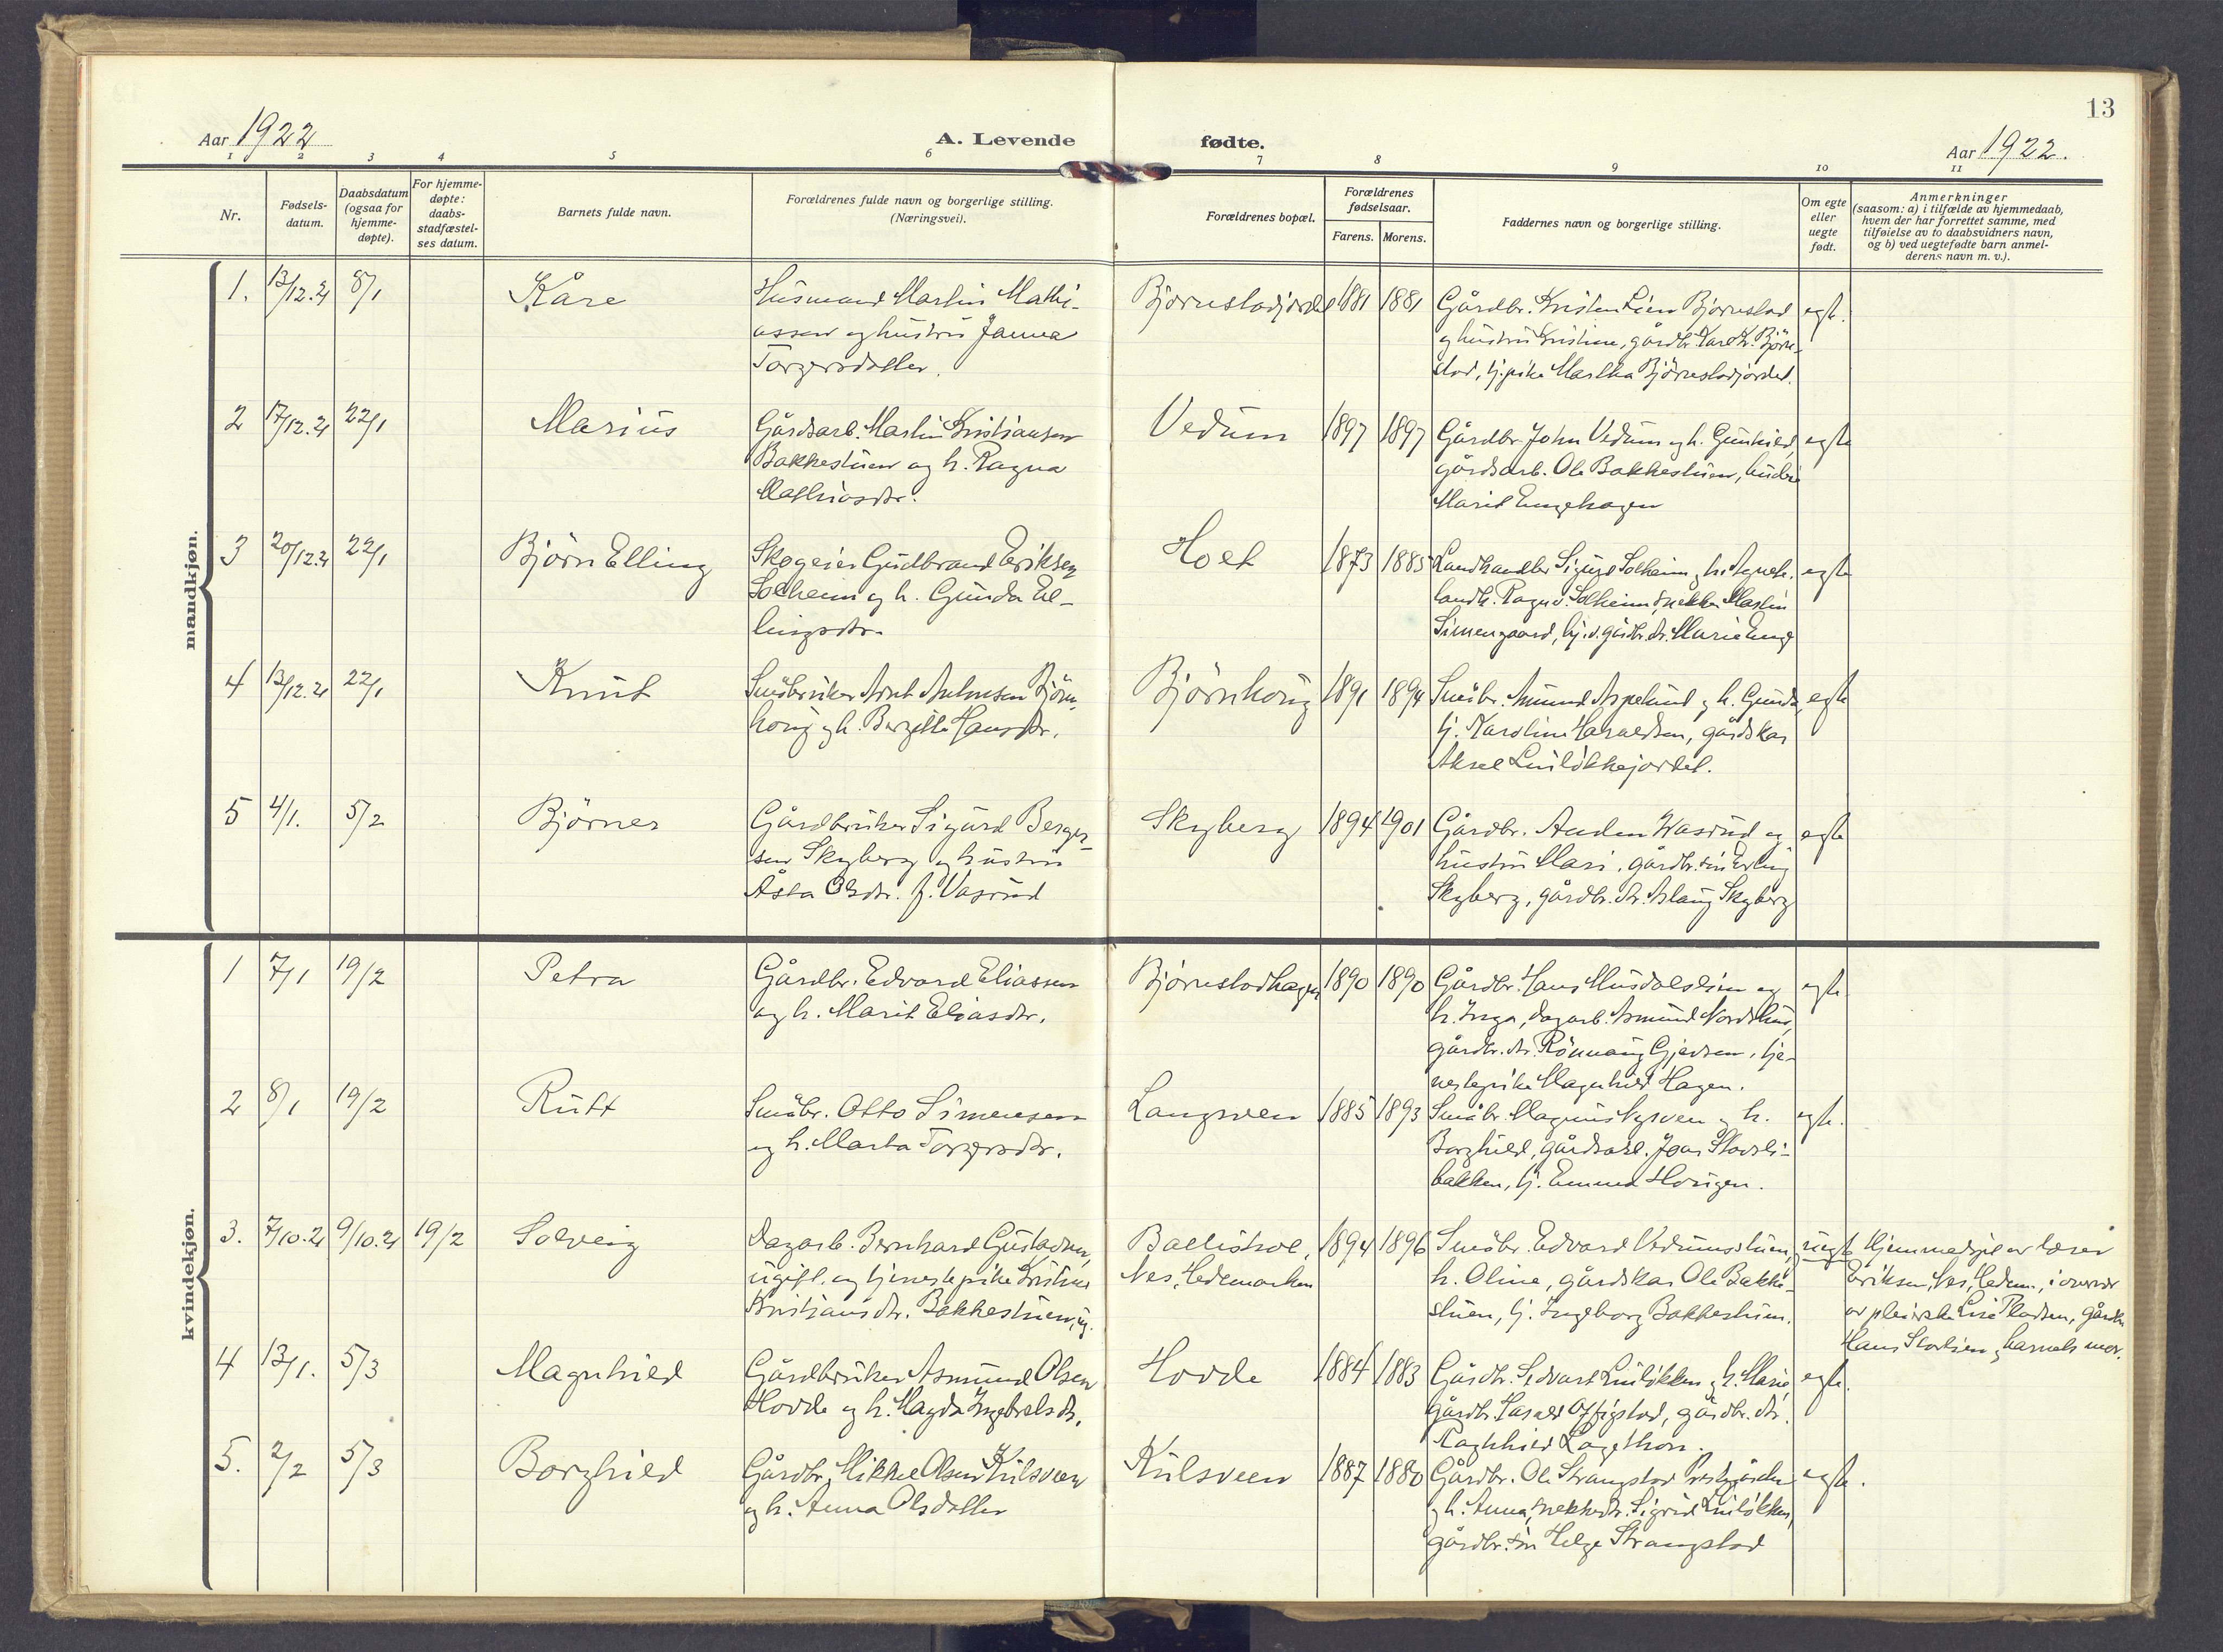 13
Aar 1922
A. Levende
fødte.
Aar 1922.
1 2 3 4 5 6 7 8 9 10 11
Nr.
Fødsels-
datum.
Daabsdatum
(ogsaa for
hjemme-
døpte).
For hjemme-
døpte:
daabs-
stadfæstel-
ses datum.
Barnets fulde navn.
Forældrenes fulde navn og borgerlige stilling.
(Næringsvei).
Forældrenes bopæl.
Forældrenes
fødselsaar.
Farens. Morens.
Faddernes navn og borgerlige stilling.
Om egte
eller
uegte
født.
Anmerkninger
(saasom: a) i tilfælde av hjemmedaab,
hvem der har forrettet samme, med
tilføielse av to daabsvidners navn,
og b) ved uegtefødte barn anmel-
derens navn m. v.).
mandkjøn.
1. 13/12.21 8/1 Kåre
Husmand Martin Mathi-
assen og hustru Janna
Torgersdatter.
Bjørnstadjordet 1881 1881
Gårdbr. Kristen Lien Bjørnstad
og hustru Kristine, gårdbr. Bjørn-
stad, tj.pike Martha Bjørnstadjordet.
egte.
2 17/12.21 22/1 Marius
Gårdsarb. Martin Kristiansen
Bakkestuen og h. Ragna
Mathiasdtr.
Vedum 1897 1897
Gårdbr. John Vedum og h. Gunhild,
gårdsarb. Ole Bakkestuen, budeie
Marit Engehagen
egte
3 20/12.21 22/1 Bjørn Elling
Skogeier Gudbrand Eriksen
Solheim og h. Gunda El-
lingsdtr.
Holt 1873 1885
Landhandler Sigurd Solheim og h. Agnete,
landh. Ragnv. Solheim, snekker Martin
Simengaard, gårdbr. dtr. Marie Enge
egte
4 13/12.21 22/1 Knut
Småbruker Arnt Antonsen Bjørn-
haug og h. Bergitte Hansdtr.
Bjørnhaug 1891 1894
Småbr. Amund Aspelund og h. Gunda,
tj. Karoline Haraldsen, gårdskar
Aksel Linløkkejordet.
egte
5 4/1. 5/2 Bjørner
Gårdbruker Sigurd Berger-
sen Skyberg og hustru
Åsta Olsdtr. f. Vasrud
Skyberg 1894 1901
Gårdbr. Anders Wasrud og
hustru Mari, gårdbr. søn Erling
Skyberg, gårdbr. dtr. Aslaug Skyberg
egte
kvindekjøn.
1 7/1 19/2 Petra
Gårdbr. Edvard Eliassen
og h. Marit Eliasdtr.
Bjørnstadhagen 1890 1890
Gårdbr. Hans Musdalslien og
h. Inga, dagarb. Amund Nordshus,
gårdbr. dtr. Rønnaug Gjedsen, tje-
nestepike Magnhild Hagen.
egte
2 8/1 19/2 Rutt
Småbr. Otto Simensen
og h. Marta Torgersdtr.
Langveen 1885 1893
Småbr. Magnus Nysveen og h.
Borghild, gårdsarb. Joan Skovli-
bakken, tj. Emma Haugen.
egte.
3. 7/10.21 9/10.21 19/2 Solveig
Dagarb. Bernhard Gustavsen,
ugift, og tjenestepike Kristine
Kristiansdtr. Bakkestuen, ug.
Ballishol,
Nes, Hedemarken
1894 1896
Småbr. Edvard Vedumsstuen,
h. Oline, gårdskar Ole Bakke-
stuen, tj. Ingeborg Bakkestuen.
uegte
Hjemmedøpt av lærer
Eriksen, Nes, Hedem., i overvær
av pleierske Lise Pladsen, gårdbr.
Hans Storlien og barnets mor.
4 13/1. 5/3 Magnhild
Gårdbruker Asmund Olsen
Hovde og h. Magda Ingebretsdtr.
Hovde 1884 1883
Gårdbr. Sedvart Linløkken og h. Marie,
gårdbr. Harald Offigstad, gårdbr. dtr.
Ragnhild Lagethon.
egte.
5. 2/2 5/3 Borghild
Gårdbr. Mikkel Olsen Kulsveen
og h. Anna Olsdatter
Kulsveen 1887 1880
Gårdbr. Ole Strangstad Prestgården
og h. Anna, snekkerdtr. Sigrid Linløkken,
gårdbr. søn Helge Strangstad
egte.